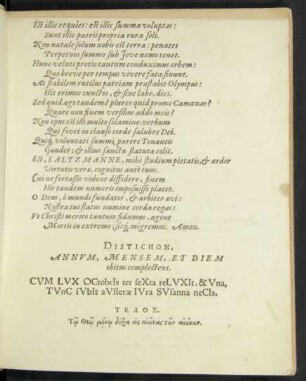 Est illic requies: est illic summa voluptas:
Sunt illic patrii propria rura soli.
Non natale solum nobis est terra: penates
Perpetuos summo sub Jove nemo tenet.
Hunc veluti precio tantum conduximus orbem:
Quo breve per tempus vivere fata sinunt.
At stabilem rutilus patriam præstabit Olympus:
Hîc erimus cunctos, & sine labe, dies.
Sed quid ago tandem? plures quid promo Camœnas?
Quare non finem versibus addo meis?
Non opus est illi multo solamine, verbum
Qui fovet in clauso corde salubre Dei.
Quiq, voluntati summi, parere Tonantis
Gaudet: & illius sancta statuta colit.
Est, SALTZMANNE, mihi studium pietatis, & ardor
Virtutis vera, cognitus ante tum.
Cui ne fortassis videar diffidere, finem
His tandem numeris imposuisse placet.
O Deus, ô mundi fundator, & arbiter ævi:
Nostra tui flatus numine corda regas:
Ut Christi merito tantum fidamus, agone
Mortis in extremo: sicq, migremus. Amen.
DISTICHON,
ANNUM, MENSEM, ET DIEM
obitus complectens.
CVM LVX OCtobrIs ter seXta reLVXIt, & Vna,
TVnC sVbIt aVsteræ IVra SVsanna neCIs.
ΤΕΛΟΣ.
Τῷ Θεῷ μόνῳ δόξα εἰς αἰῶνας τῶν αἰώνων.